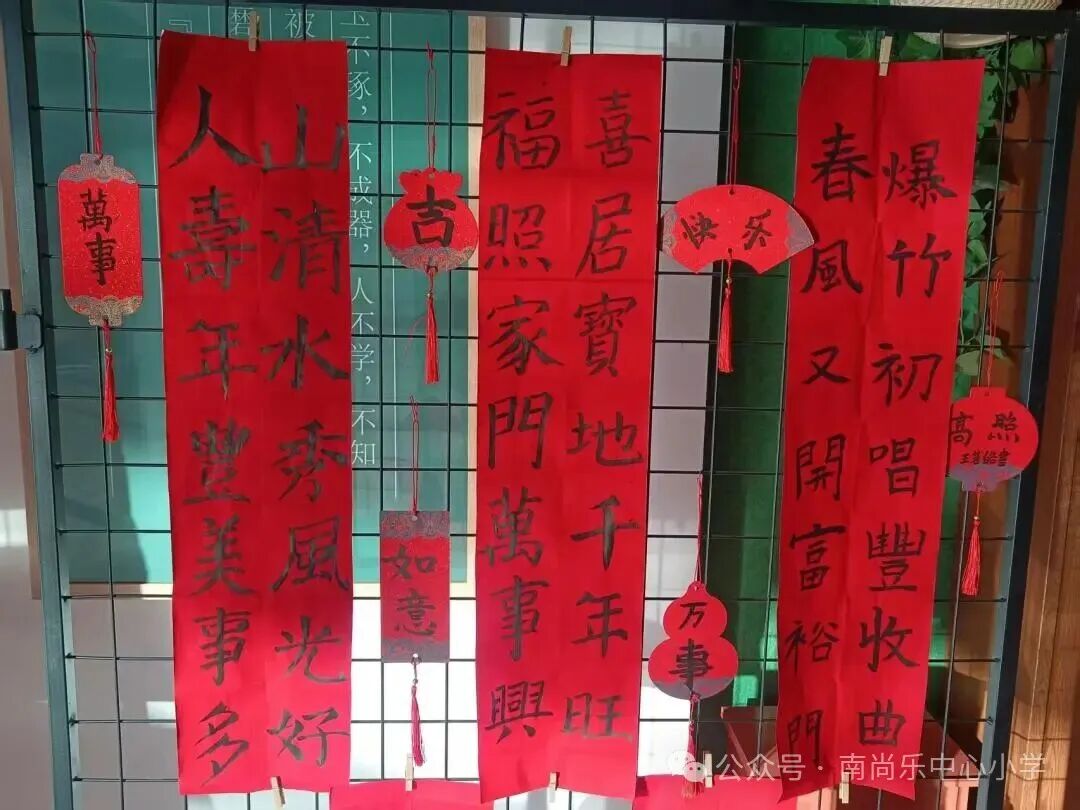 爆竹初唱豐收曲
春風又開富裕門
喜居寶地千年旺
福照家門萬事興
山清水秀風光好
人壽年豐美事多
高照
快乐
万事
吉
如意
萬事
不琢，不成器，人不学，不知
被
公众号 · 南尚乐中心小学